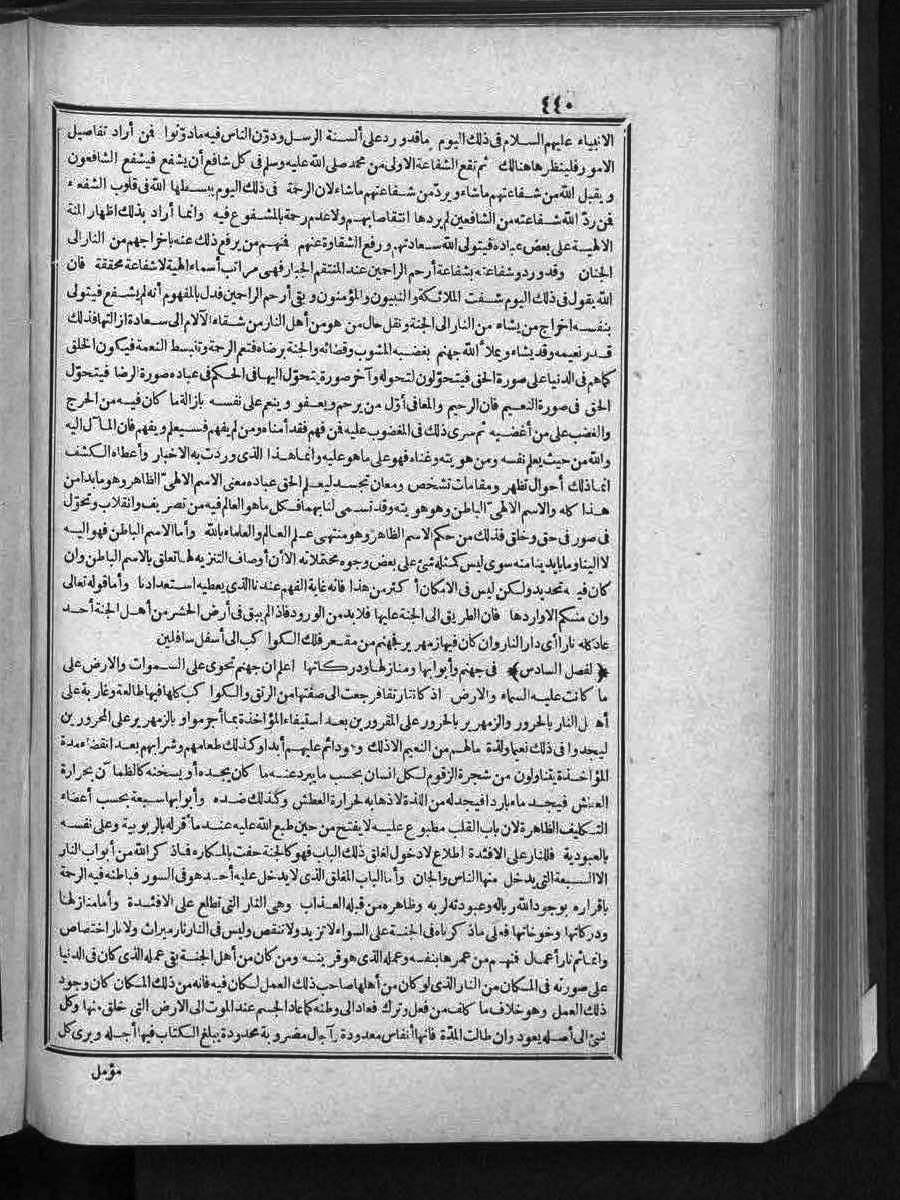 ٤٤٠
الانبياء عليهم السلام فى ذلك اليوم ما قد ورد على ألسنة الرسل ودوّن الناس فيه مادوّنوا فمن أراد تفاصيل
الامور فلينظرها هنالك ثم تقع الشفاعة الاولى من محمد صلى الله عليه وسلم فى كل شافع أن يشفع فيشفع الشافعون
ويقبل الله من شفاعتهم ماشاء ويردّ من شفاعتهم ماشاء لان الرحمة فى ذلك اليوم يبسطها الله فى قلوب الشفعاء
فمن ردّ الله شفاعته من الشافعين لم يردها انتقاصا بهم ولا عدم رحمة بالمشفوع فيه وانما أراد بذلك اظهار المنة
الالهية على بعض عباده فيتولى الله سعادتهم ورفع الشقاوة عنهم فمنهم من يرفع ذلك عنه باخراجهم من النار الى
الجنان وقد ورد وشفاعته بشفاعة أرحم الراحمين عند المنتقم الجبار فهى مراتب أسماء الهية لا شفاعة محققة فان
الله يقول فى ذلك اليوم شفعت الملائكة والنبيون والمؤمنون وبقى أرحم الراحمين فدل بالمفهوم أنه لم يشفع فيتولى
بنفسه اخراج من يشاء من النار الى الجنة ونقل حال من هو من أهل النار من شقاء الآلام الى سعادة ازالتها فذلك
قدر نعيمه وقد يشاء ويملأ الله جهنم بغضبه المشوب وقضائه والجنة برضاه فتعم الرحمة وتنبسط النعمة فيكون الخلق
كما هم فى الدنيا على صورة الحق فيتحوّلون لتحوله وآخر صورة يتحوّل اليها فى الحكم فى عباده صورة الرضا فيتحوّل
الحق فى صورة النعيم فان الرحيم والمعافى أوّل من يرحم ويعفو وينعم على نفسه بازالة ما كان فيه من الحرج
والغضب على من أغضبه ثم سرى ذلك فى المغضوب عليه فمن فهم فقد أمناه ومن لم يفهم فسيعلم ويفهم فان المآل اليه
والله من حيث يعلم نفسه ومن هويته وغناه فهو على ما هو عليه وانما هذا الذى وردت به الاخبار وأعطاه الكشف
انما ذلك أحوال تظهر ومقامات تشخص ومعان تجسد ليعلم الحق عباده معنى الاسم الالهىّ الظاهر وهو ما بدا من
هذا كله والاسم الالهىّ الباطن وهو هويته وقد تسمى لنا بهما فكل ما هو العالم فيه من تصريف وانقلاب وتحوّل
فى صور فى حق وخلق فذلك من حكم الاسم الظاهر وهو منتهى علم العالم والعلماء بالله وأما الاسم الباطن فهو اليه
لا الينا وما بايدينا منه سوى ليس كمثله شئ على بعض وجوه محتملاته الا أن أوصاف التنزيه لها تعلق بالاسم الباطن وان
كان فيه تحديد ولكن ليس فى الامكان أكثر من هذا فانه غاية الفهم عندنا الذى يعطيه استعدادنا وأما قوله تعالى
وان منكم الا واردها فان الطريق الى الجنة عليها فلابد من الورود فاذا لم يبق فى أرض الحشر من أهل الجنة أحد
عاد كله نارا أى دار النار وان كان فيها زمهرير فجهنم من مقعر فلك الكواكب الى أسفل سافلين
﴿الفصل السادس﴾ فى جهنم وأبوابها ومنازلها ودركاتها اعلم ان جهنم تحوى على السموات والارض على
ما كانت عليه السماء والارض اذ كانتا رتقا فرجعت الى صفتها من الرتق والكواكب كلها فيها طالعة وغاربة على
أهل النار بالحرور والزمهرير بالحرور على المقرورين بعد استيفاء المؤاخذة بما أجرموا وبالزمهرير على المحرورين
ليجدوا فى ذلك نعيما ولذة مالهم من النعيم الا ذلك وهو دائم عليهم أبدا وكذلك طعامهم وشرابهم بعد انقضاء مدة
المؤاخذة يتناولون من شجرة الزقوم لكل انسان بحسب ما يبرد عنه ما كان يجده أو يسخنه كالظمآن بحرارة
العطش فيجد ماء باردا فيجد له من اللذة لاذهابه لحرارة العطش وكذلك ضده وأبوابها سبعة بحسب أعضاء
التكليف الظاهرة لان باب القلب مطبوع عليه لا يفتح من حين طبع الله عليه عند ما أقر له بالربوبية وعلى نفسه
بالعبودية فللنار على الافئدة اطلاع لا دخول لغلق ذلك الباب فهو كالجنة حفت بالمكاره فما ذكر الله من أبواب النار
الا السبعة التى يدخل منها الناس والجان وأما الباب المغلق الذى لا يدخل عليه أحد هو فى السور فباطنه فيه الرحمة
باقراره بوجود الله ربا له وعبودته لربه وظاهره من قبله العذاب وهى النار التى تطلع على الافئدة وأما منازلها
ودركاتها وخوخاتها فعلى ما ذكرناه فى الجنة على السواء لا تزيد ولا تنقص وليس فى النار نار ميراث ولا نار اختصاص
وانما ثم نار أعمال فمنهم من عمرها بنفسه وعمله الذى هو قرينه ومن كان من أهل الجنة بقى عمله الذى كان فى الدنيا
على صورته فى المكان من النار الذى لو كان من أهلها صاحب ذلك العمل لكان فيه فانه من ذلك المكان كان وجود
ذلك العمل وهو خلاف ما كلف من فعل وترك فعاد الى وطنه كما عاد الجسم عند الموت الى الارض التى خلق منها وكل
شئ الى أصله يعود وان طالت المدّة فانها أنفاس معدودة وآجال مضروبة محدودة يبلغ الكتاب فيها أجله ويرى كل
مؤمل